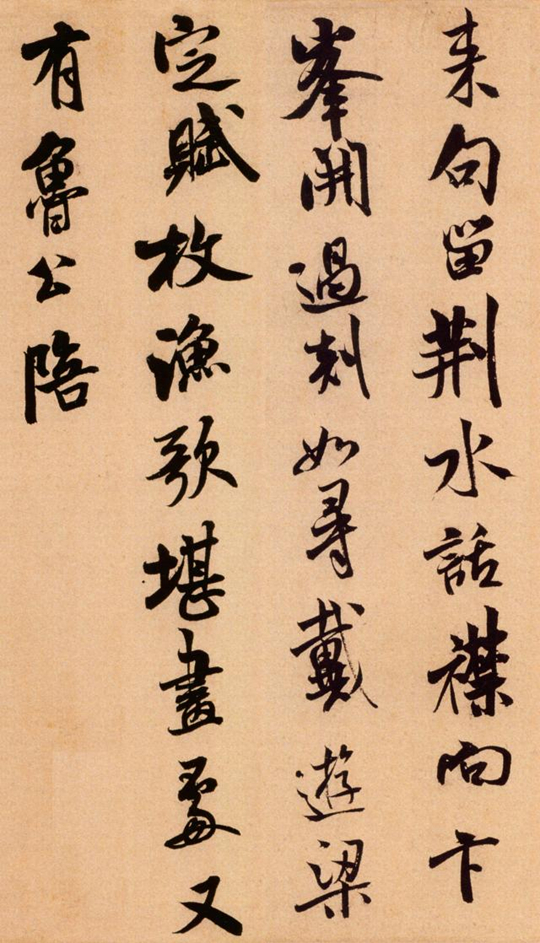 来句留荆水話襟向卞
峯開過剡如尋戴遊梁
定賦枚漁歌堪畫處又
有魯公陪